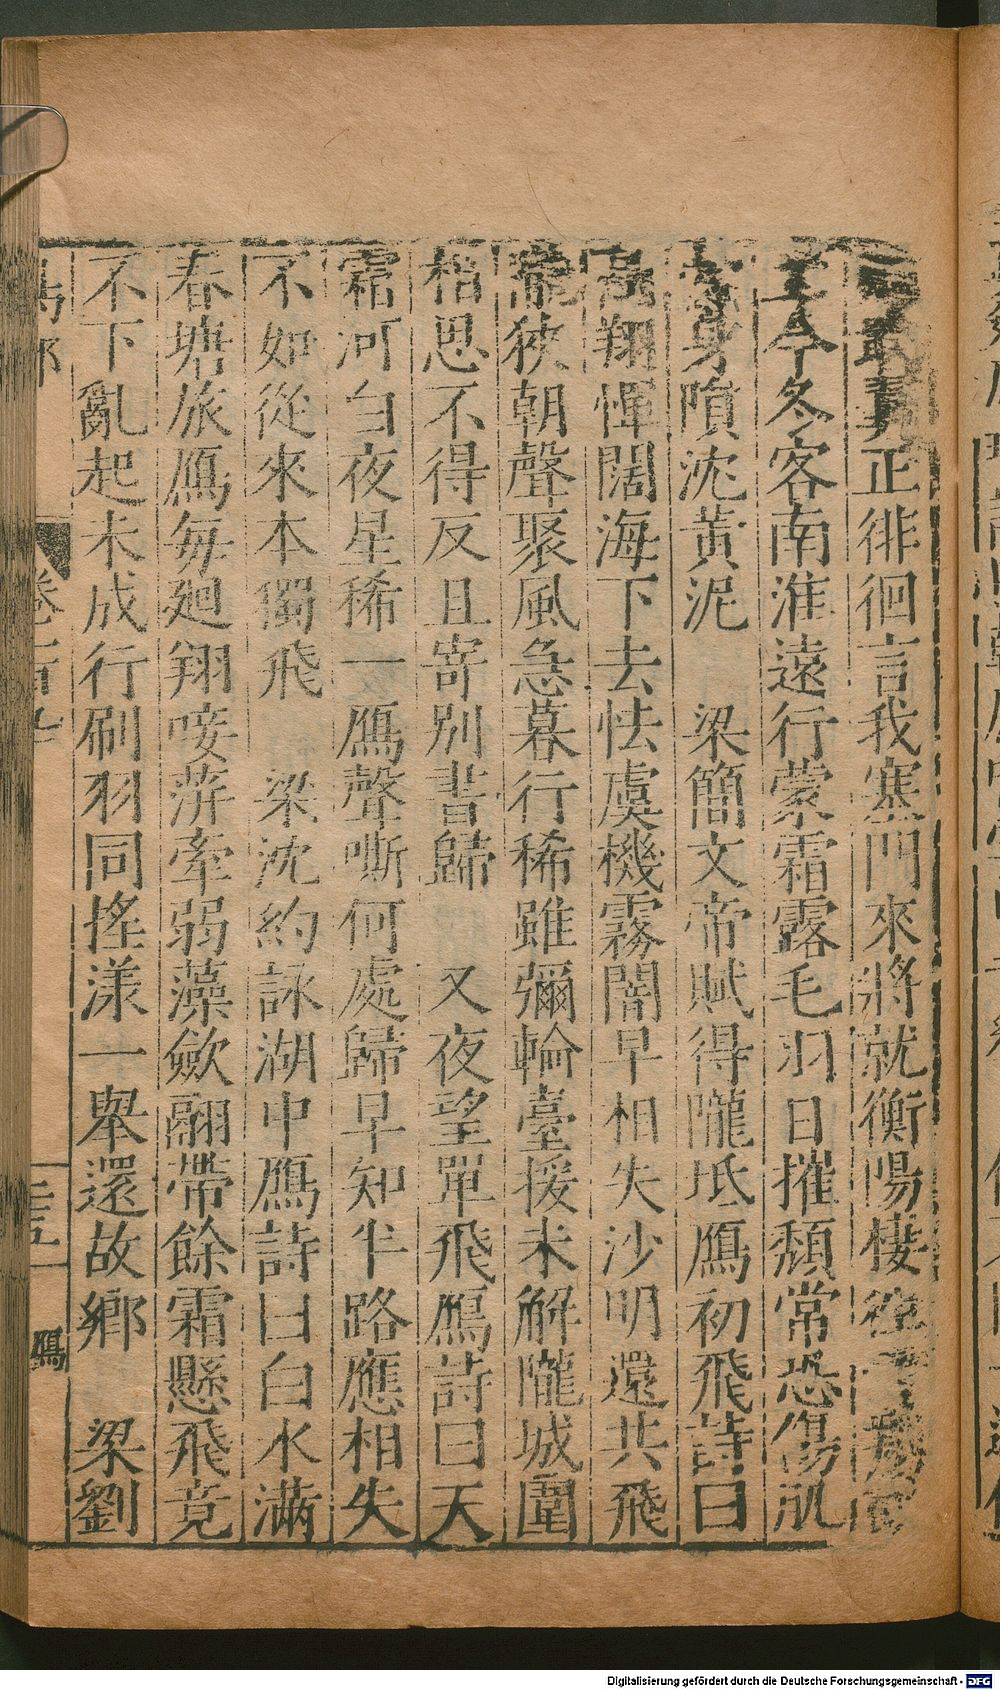 戢翼正徘徊言我塞門來將就衡陽棲往
土今冬客南淮遠行蒙霜露毛羽日摧頹常恐傷肌
骨身隕沈黃泥　梁簡文帝賦得隴坻鴈初飛詩曰
高翔憚闊海下去怯虞機霧闇早相失沙明還共飛
隴狹朝聲聚風急暮行稀雖彌輪臺援未解隴城圍
相思不得反且寄別書歸　又夜望單飛鴈詩曰天
霜河白夜星稀一鴈聲嘶何處歸早知半路應相失
不如從來本獨飛　梁沈約詠湖中鴈詩曰白水滿
春塘旅鴈每廻翔唼蓱牽弱藻斂翮帶餘霜懸飛竟
不下亂起未成行刷羽同搖漾一舉還故鄉　梁劉
鳥部　卷　二十五　鴈
Digitalisierung gefördert durch die Deutsche Forschungsgemeinschaft - DFG